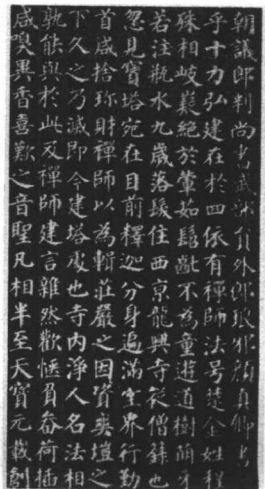 朝議郎判尚書武部員外郎琅邪顏真卿書
乎十力弘建在於四依有禪師法号楚金姓程
殊相岐嶷絕於葷茹髫齔不為童遊道樹萌牙
若注瓶水九歲落髮住西京龍興寺從僧籙也
忽見寶塔宛在目前釋迦分身遍滿空界行勤
首咸捨珍財禪師以為輯莊嚴之因資爽塏之
下久之乃滅即今建塔處也寺內淨人名法相
孰能與於此及禪師建言雜然歡愜負畚荷插
咸嗅異香喜歎之音聖凡相半至天寶元載創